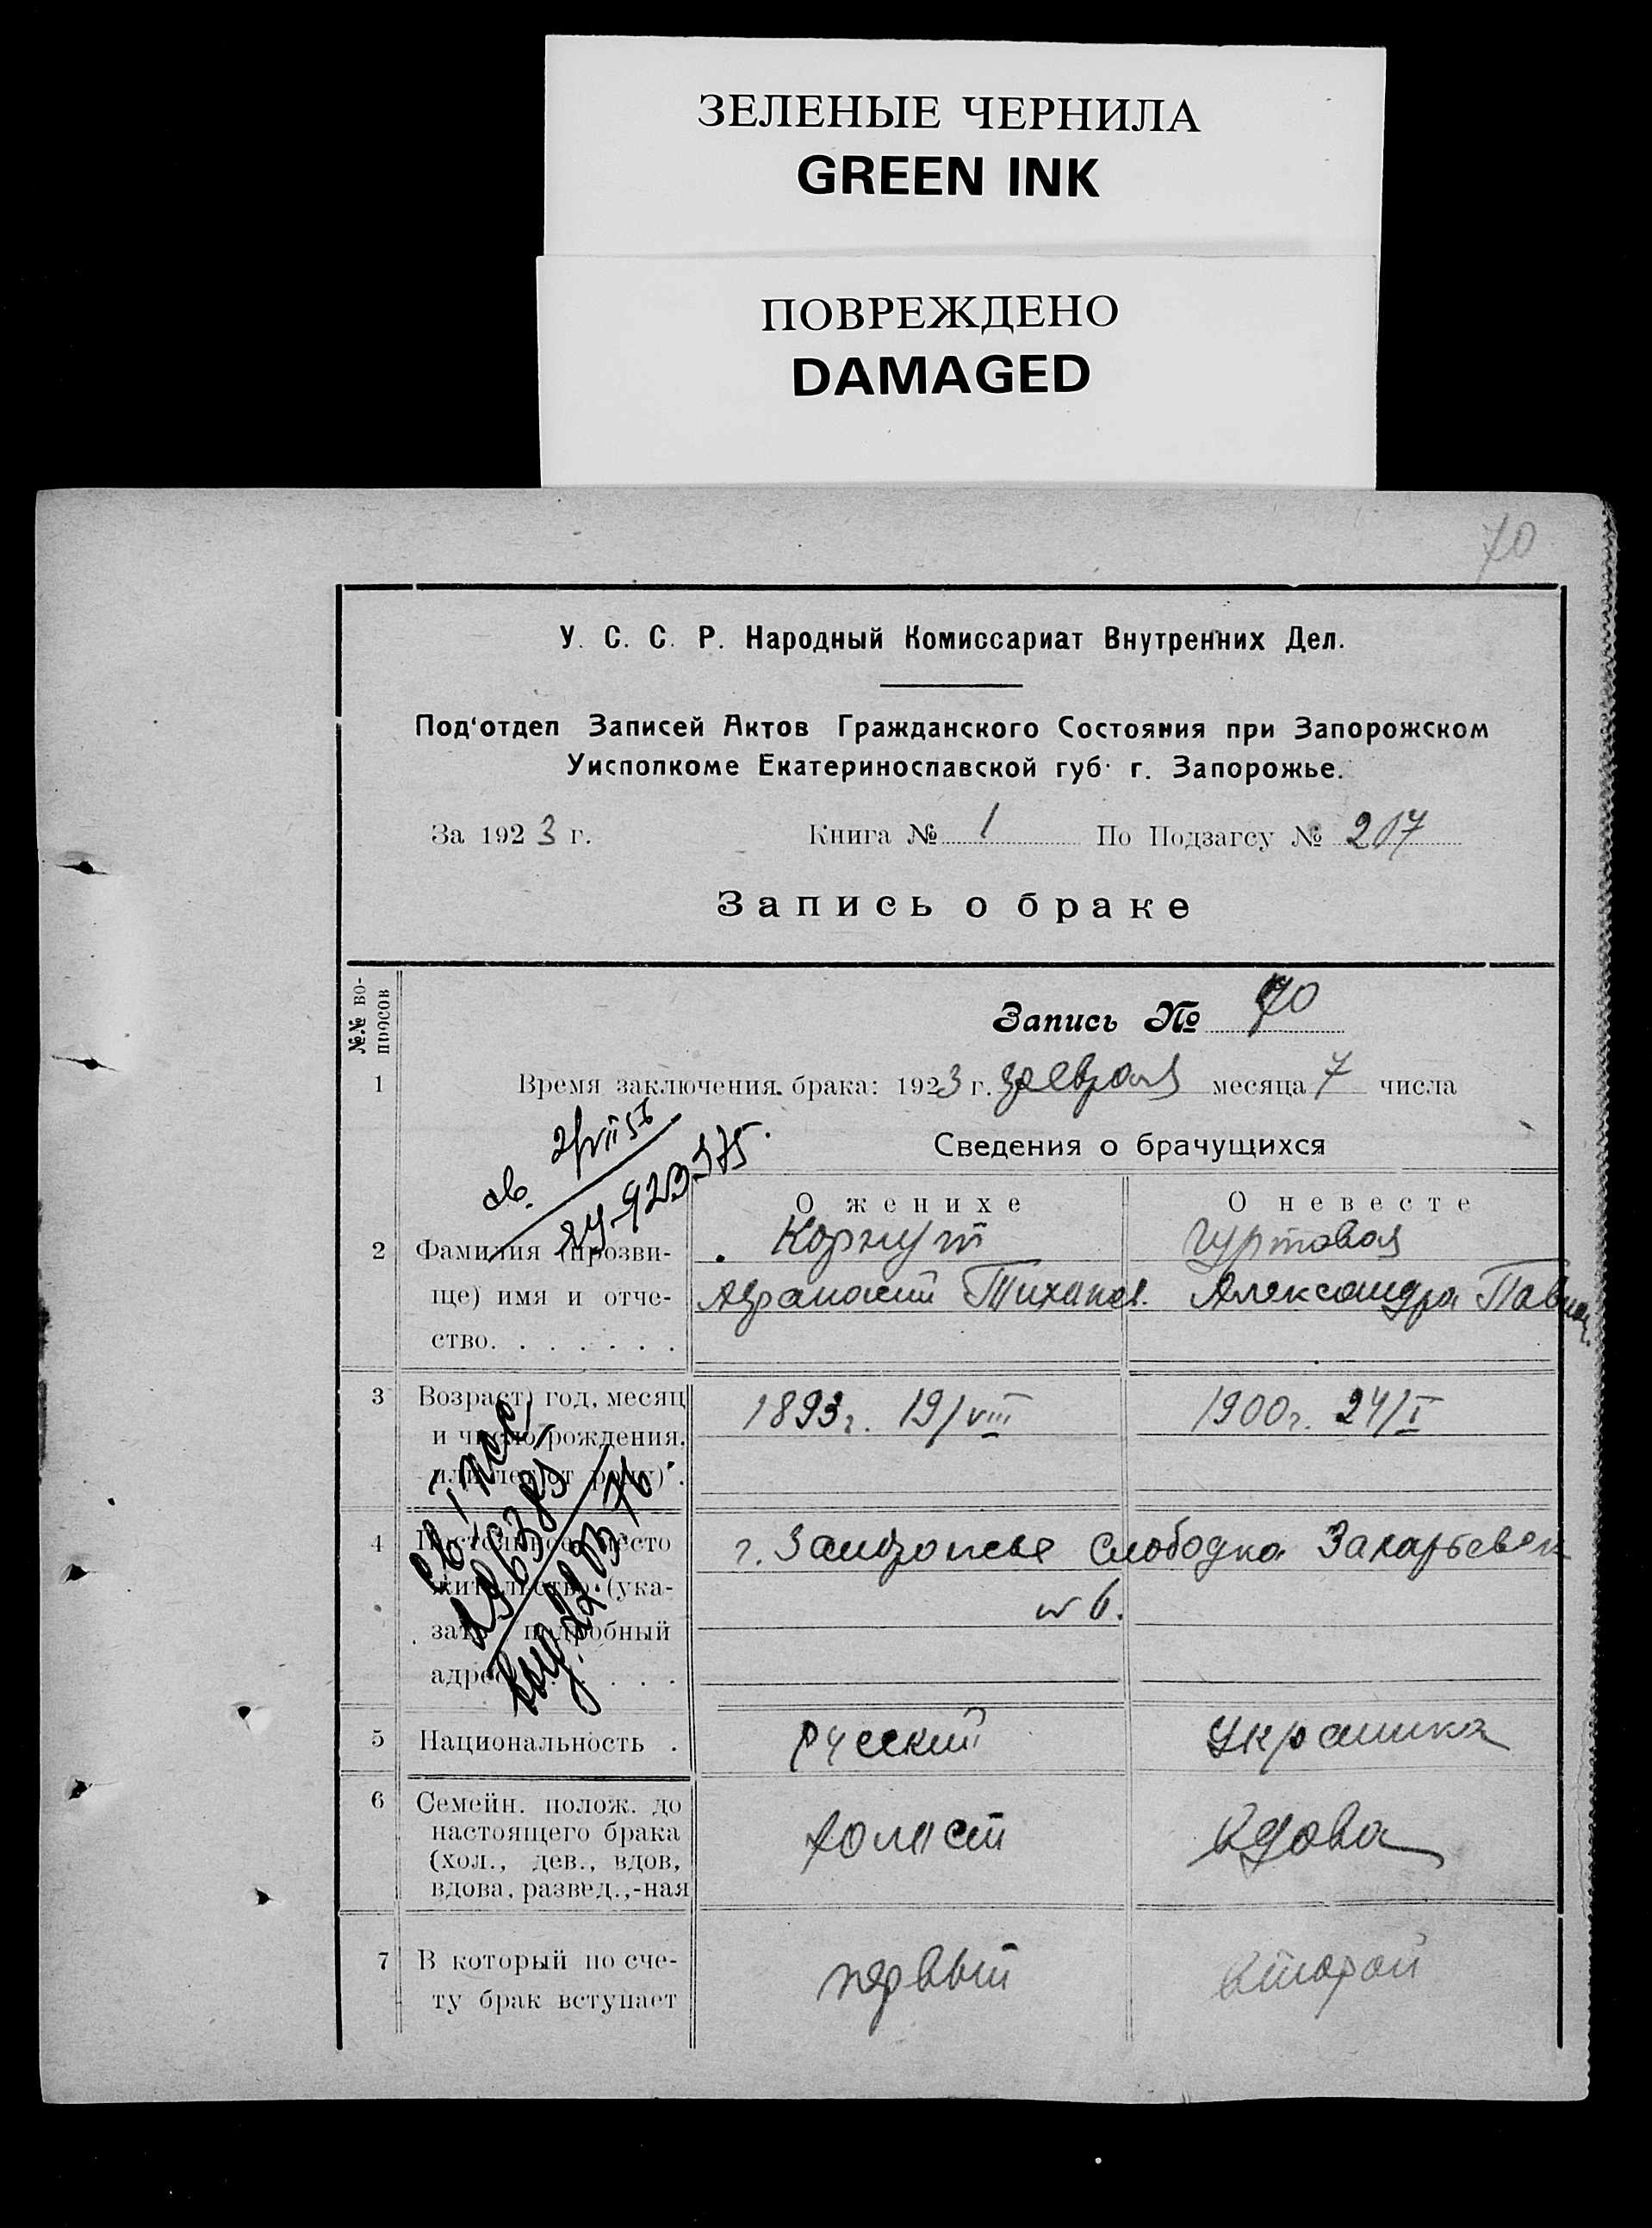 ЗЕЛЕНЫЕ ЧЕРНИЛА
GREEN INK
ПОВРЕЖДЕНО
DAMAGED
70
У. С. С. Р. Народный Комиссариат Внутренних Дел.
Под'отдел Записей Актов Гражданского Состояния при Запорожском
Уисполкоме Екатеринославской губ. г. Запорожье.
За 1923 г. Книга № 1 По Подзагсу № 207
Запись о браке
№№ вопросов
Запись № 70
1 Время заключения брака: 1923 г. февраля месяца 7 числа
Сведения о брачущихся
О женихе О невесте
2 Фамилия (прозви- Коржут Гуртовая
ще) имя и отче- Тиханов. Александра Павлов.
ство. . . . . . .
3 Возраст) год, месяц 1893г. 19/VIII 1900г. 24/I
и число рождения.
или лет от роду) .
4 Постоянное место г. Запорожье Слободка
жительство (ука- № 6.
зать подробный
адрес . . . .
5 Национальность . русский Украинка
6 Семейн. полож. до холост вдова
настоящего брака
(хол., дев., вдов,
вдова, развед.,-ная
7 В который по сче- первый второй
ту брак вступает